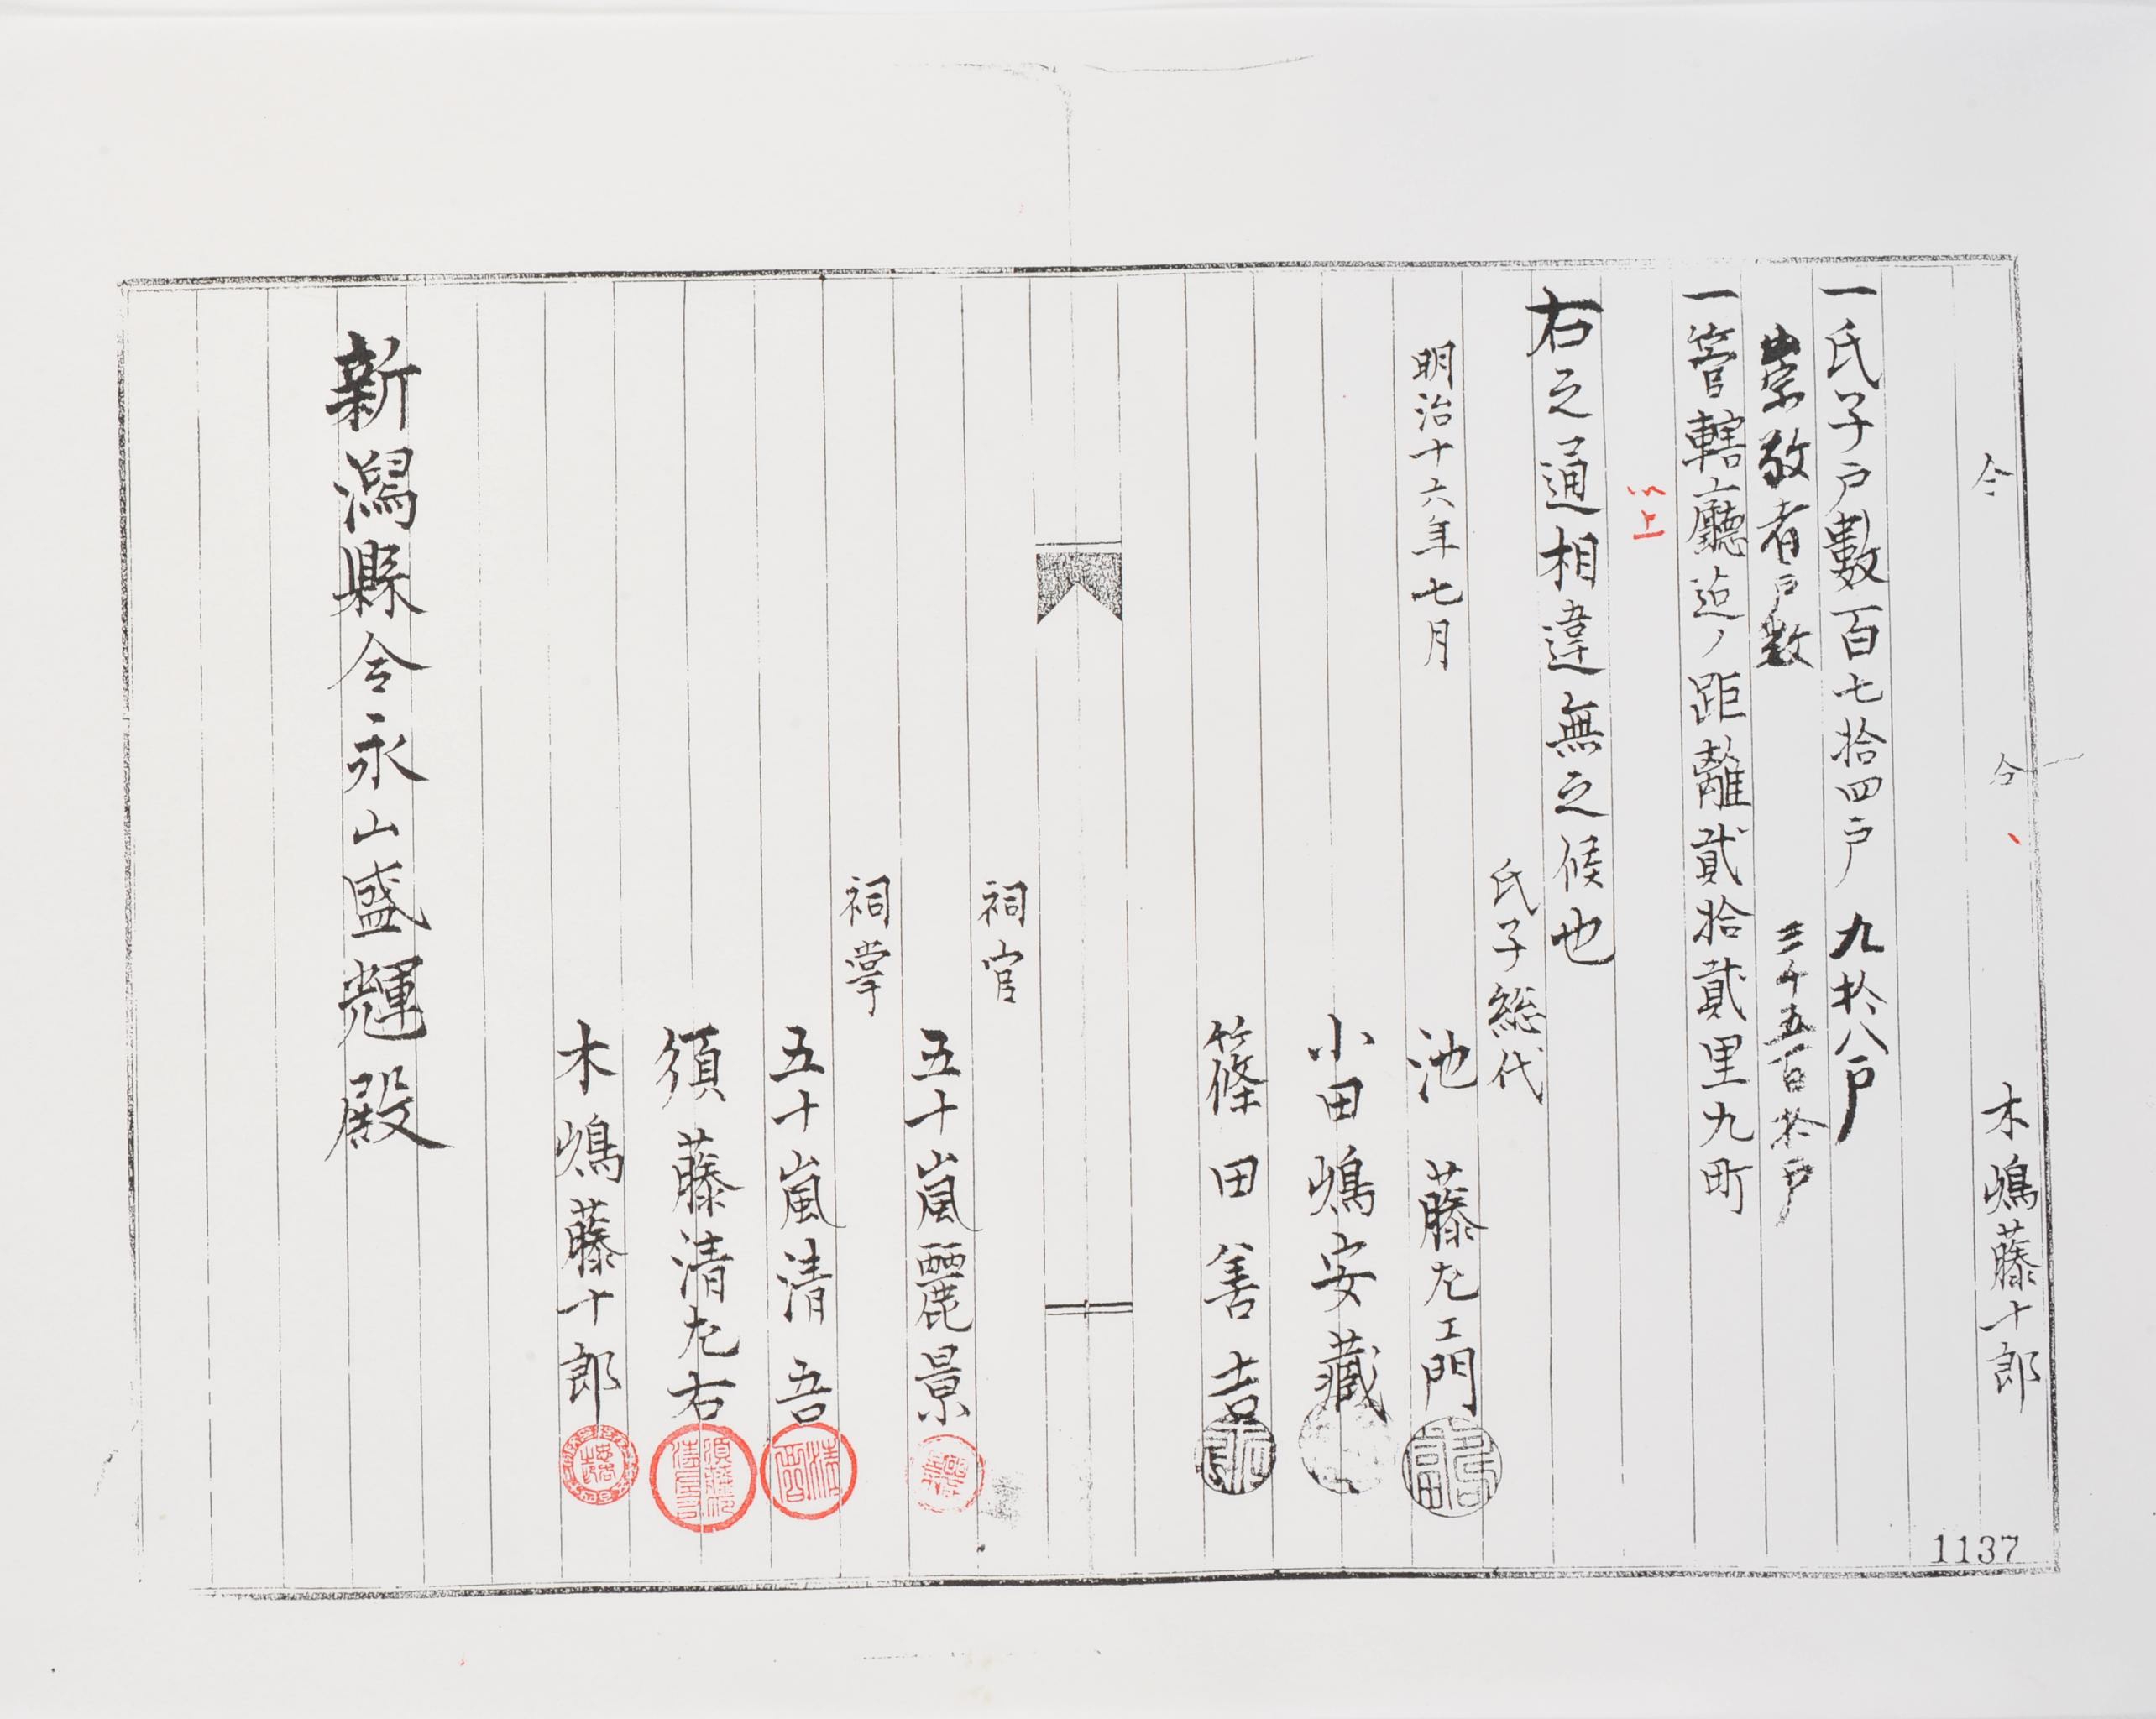 仝 仝 木嶋藤十郎
一氏子戸數百七拾四戸 九拾八戸
崇敬者戸数 三千五百拾戸
一管轄廳迠ノ距離貳拾貳里九町
以上
右之通相違無之候也
氏子総代
明治十六年七月 池藤左工門
小田嶋安藏
篠田善吉
祠官
五十嵐麗景
祠掌
五十嵐清吾
須藤清左右
木嶋藤十郎
新潟縣令永山盛輝殿
1137